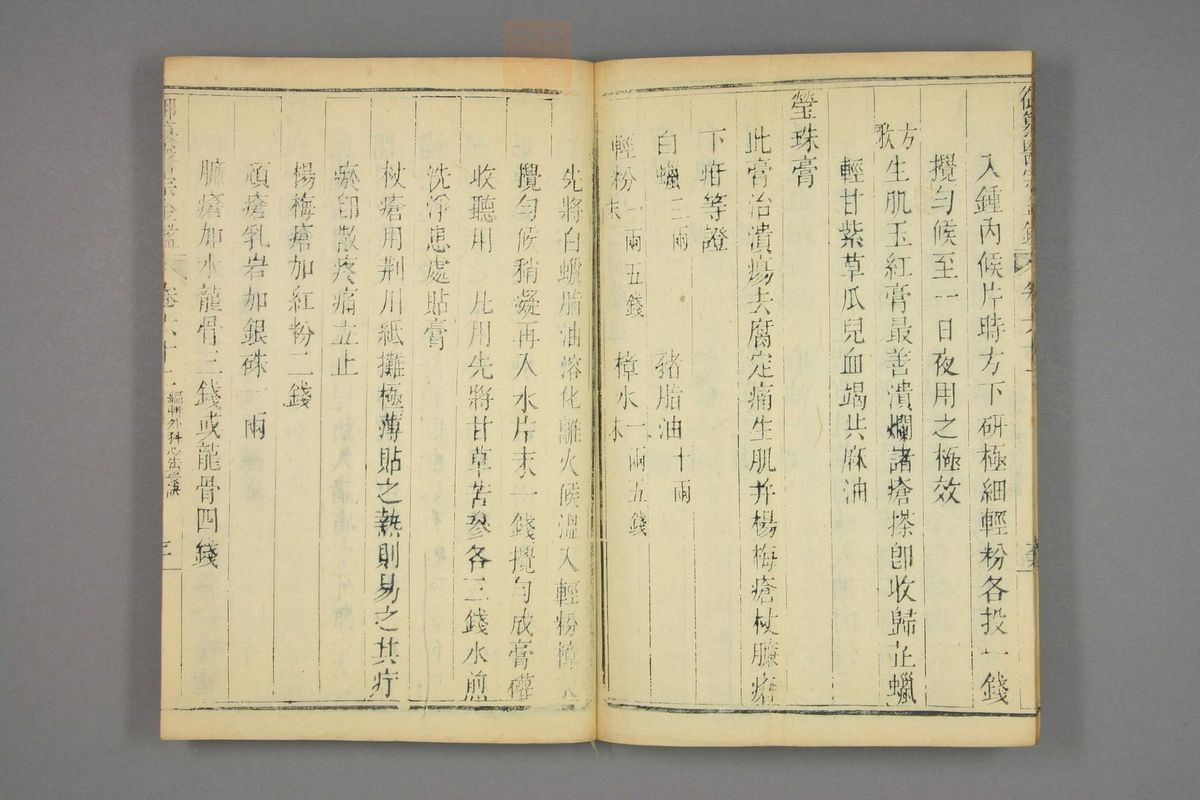 入鍾內候片時方下研極細輕粉各投一錢
攪勻候至一日夜用之極效
方歌
生肌玉紅膏最善潰爛諸瘡搽即收歸芷蠟
輕甘紫草瓜兒血竭共麻油
瑩珠膏
此膏治潰瘍去腐定痛生肌并楊梅瘡杖臁瘡
下疳等證
白蠟三兩 豬脂油十兩
輕粉末一兩五錢 樟冰末一兩五錢
先將白蠟脂油溶化離火候溫入輕粉樟冰
攪勻候稍凝再入冰片末一錢攪勻成膏罐
收聽用 凡用先將甘草苦參各三錢水煎
洗淨患處貼膏
杖瘡用荆川紙攤極薄貼之熱則易之其疔
瘀即散疼痛立止
楊梅瘡加紅粉二錢
頑瘡乳岩加銀硃一兩
臁瘡加水龍骨三錢或龍骨四錢
卷六十二
編輯外科心法要訣
三